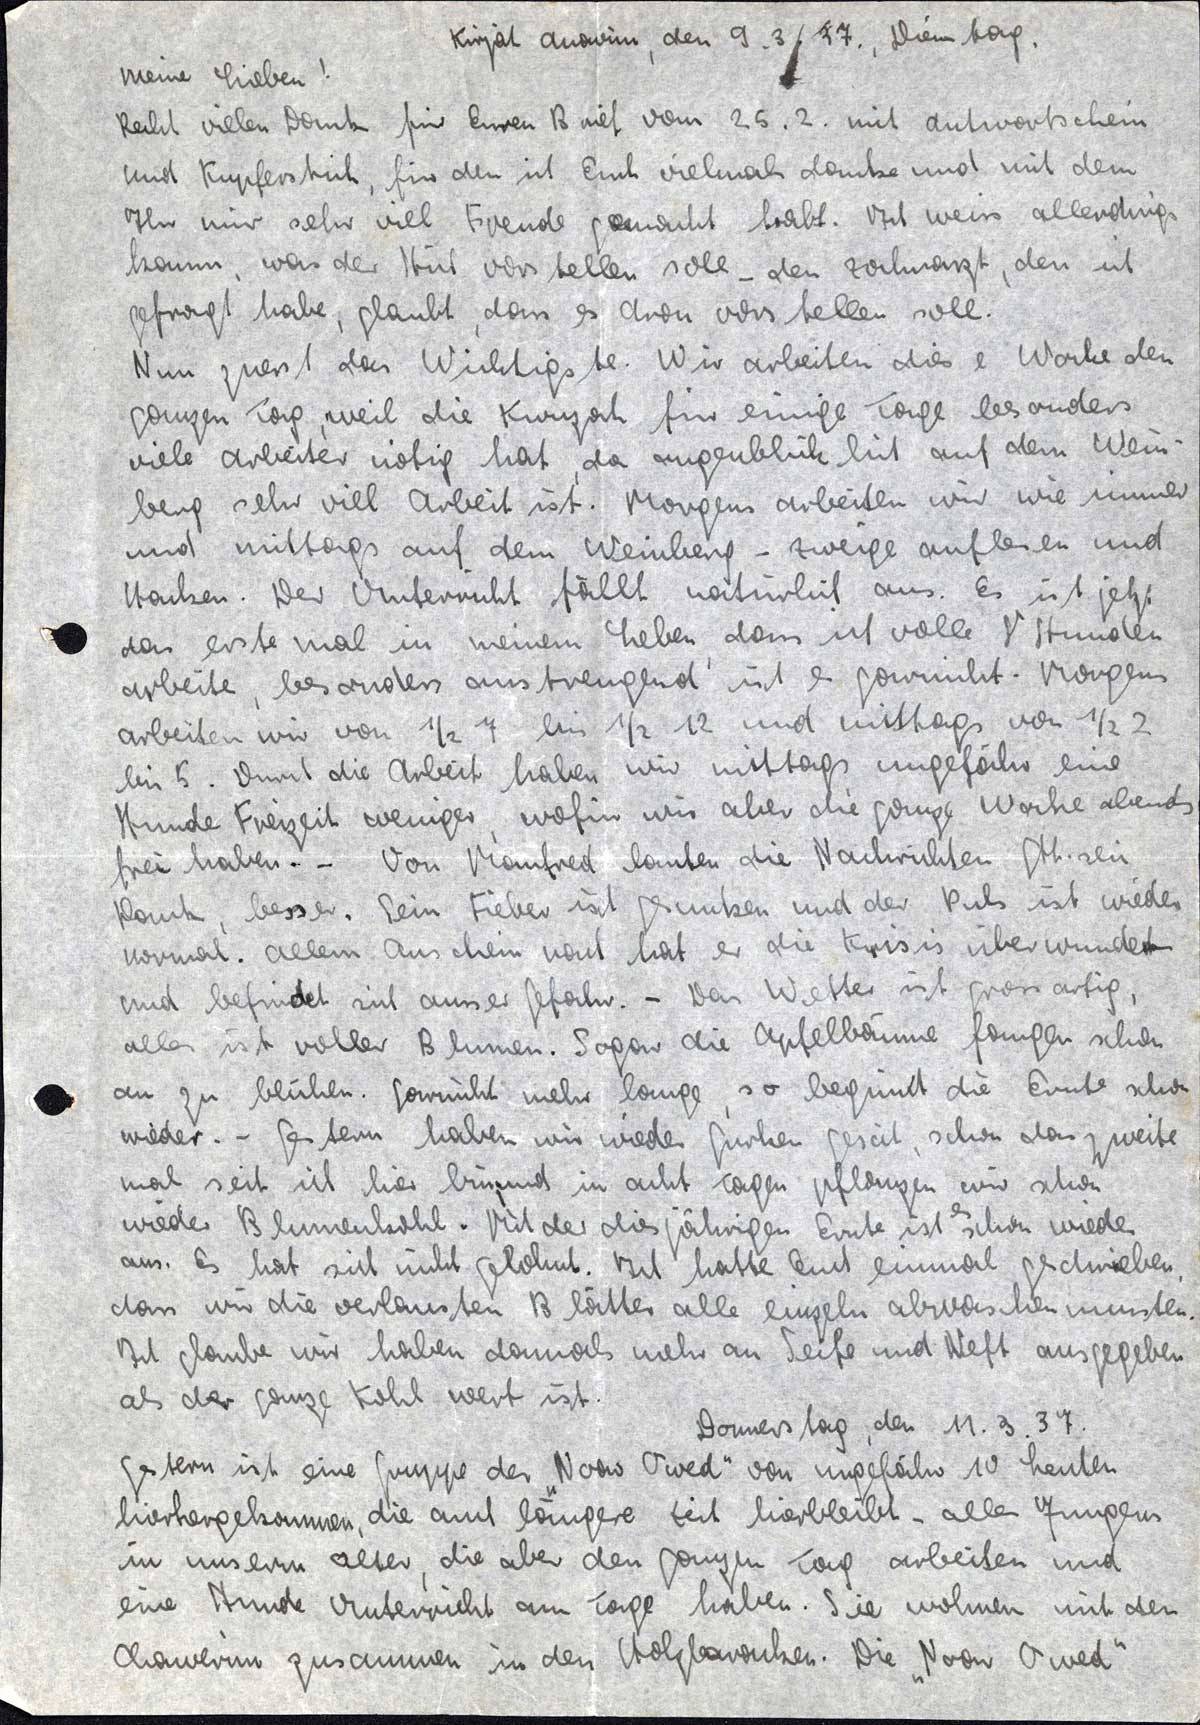 Kirjat Anavim, den 9.3/37., Dienstag.
Meine Lieben!
Recht vielen Dank für Euren Brief vom 25.2. mit Antwortschein
und Kupferstich, für den ich Euch vielmals danke und mit dem
Ihr mir sehr viel Freude gemacht habt. Ich weiss allerdings
kaum, was der Stich vorstellen soll - den Zahnarzt, den ich
gefragt habe, glaubt, dass es Aron vorstellen soll.
Nun zuerst das Wichtigste. Wir arbeiten diese Woche den
ganzen Tag, weil die Kwuzah für einige Tage besonders
viele Arbeiter nötig hat, da augenblicklich auf dem Wein-
berg sehr viel Arbeit ist. Morgens arbeiten wir wie immer
und mittags auf dem Weinberg - Zweige auflesen und
Hacken. Der Unterricht fällt natürlich aus. Es ist jetzt
das erste mal in meinem Leben, dass ich volle 8 Stunden
arbeite, besonders anstrengend ist es garnicht. Morgens
arbeiten wir von 1/2 7 bis 1/2 12 und mittags von 1/2 2
bis 5. Durch die Arbeit haben wir mittags ungefähr eine
Stunde Freizeit weniger, wofür wir aber die ganze Woche abends
frei haben. - Von Manfred lauten die Nachrichten, Gtt. sei
Dank, besser. Sein Fieber ist gesunken und der Puls ist wieder
normal. Allem Anschein nach hat er die Krisis überwunden
und befindet sich ausser Gefahr. - Das Wetter ist grossartig,
alles ist voller Blumen. Sogar die Apfelbäume fangen schon
an zu blühen. Garnicht mehr lange, so beginnt die Ernte schon
wieder. - Gestern haben wir wieder Gurken gesät, schon das zweite
mal seit ich hier bin, und in acht Tagen pflanzen wir schon
wieder Blumenkohl. Mit der diesjährigen Ernte ist es schon wieder
aus. Es hat sich nicht gelohnt. Ich hatte Euch einmal geschrieben,
dass wir die verlausten Blätter alle einzeln abwaschen mussten.
Ich glaube wir haben damals mehr an Seife und Neft ausgegeben
als der ganze Kohl wert ist.
Donnerstag, den 11.3.37.
Gestern ist eine Gruppe der „Noar Owed" von ungefähr 10 Leuten
hierhergekommen, die auch längere Zeit hierbleibt - alles Jungens
in unserm Alter, die aber den ganzen Tag arbeiten und
eine Stunde Unterricht am Tage haben. Sie wohnen mit den
Chawerim zusammen in den Holzbaracken. Die „Noar Owed"